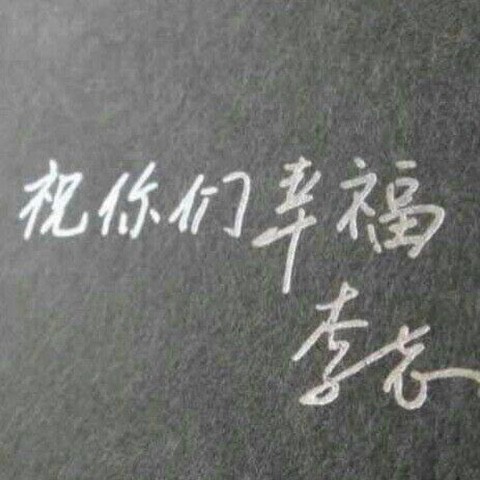 祝你们幸福
李志